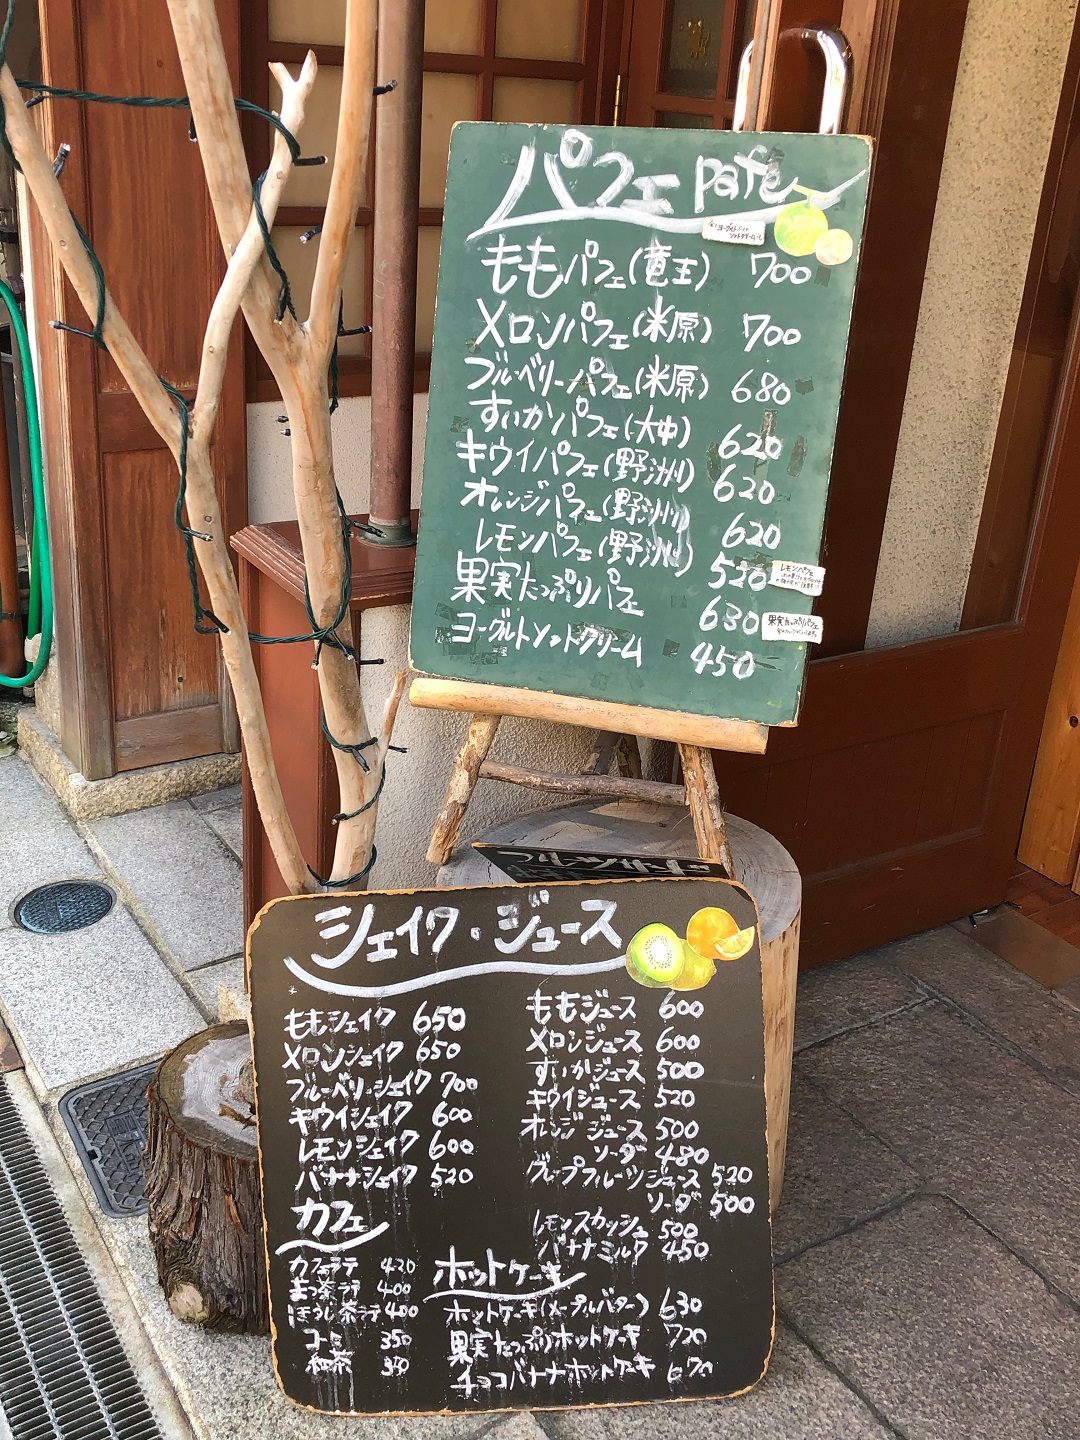 パフェ pafe
ももパフェ(竜王) 700
メロンパフェ(米原) 700
ブルーベリーパフェ(米原) 680
すいかパフェ(大中) 620
キウイパフェ(野洲) 620
オレンジパフェ(野洲) 620
レモンパフェ(野洲) 520
レモンパフェ
果実たっぷりパフェ 630
果実たっぷりパフェ
ヨーグルトソフトクリーム 450
シェイク・ジュース
ももシェイク 650
メロンシェイク 650
ブルーベリーシェイク 700
キウイシェイク 600
レモンシェイク 600
バナナシェイク 520
カフェ
カフェラテ 420
まっ茶ラテ 400
ほうじ茶ラテ 400
コーヒー 350
紅茶
ももジュース 600
メロンジュース 600
すいかジュース 500
キウイジュース 520
オレンジジュース 500
ソーダ 480
グレープフルーツジュース 520
ソーダ 500
レモンスカッシュ 500
バナナミルク 450
ホットケーキ
ホットケーキ(メープルバター) 630
果実たっぷりホットケーキ 720
チョコバナナホットケーキ 670